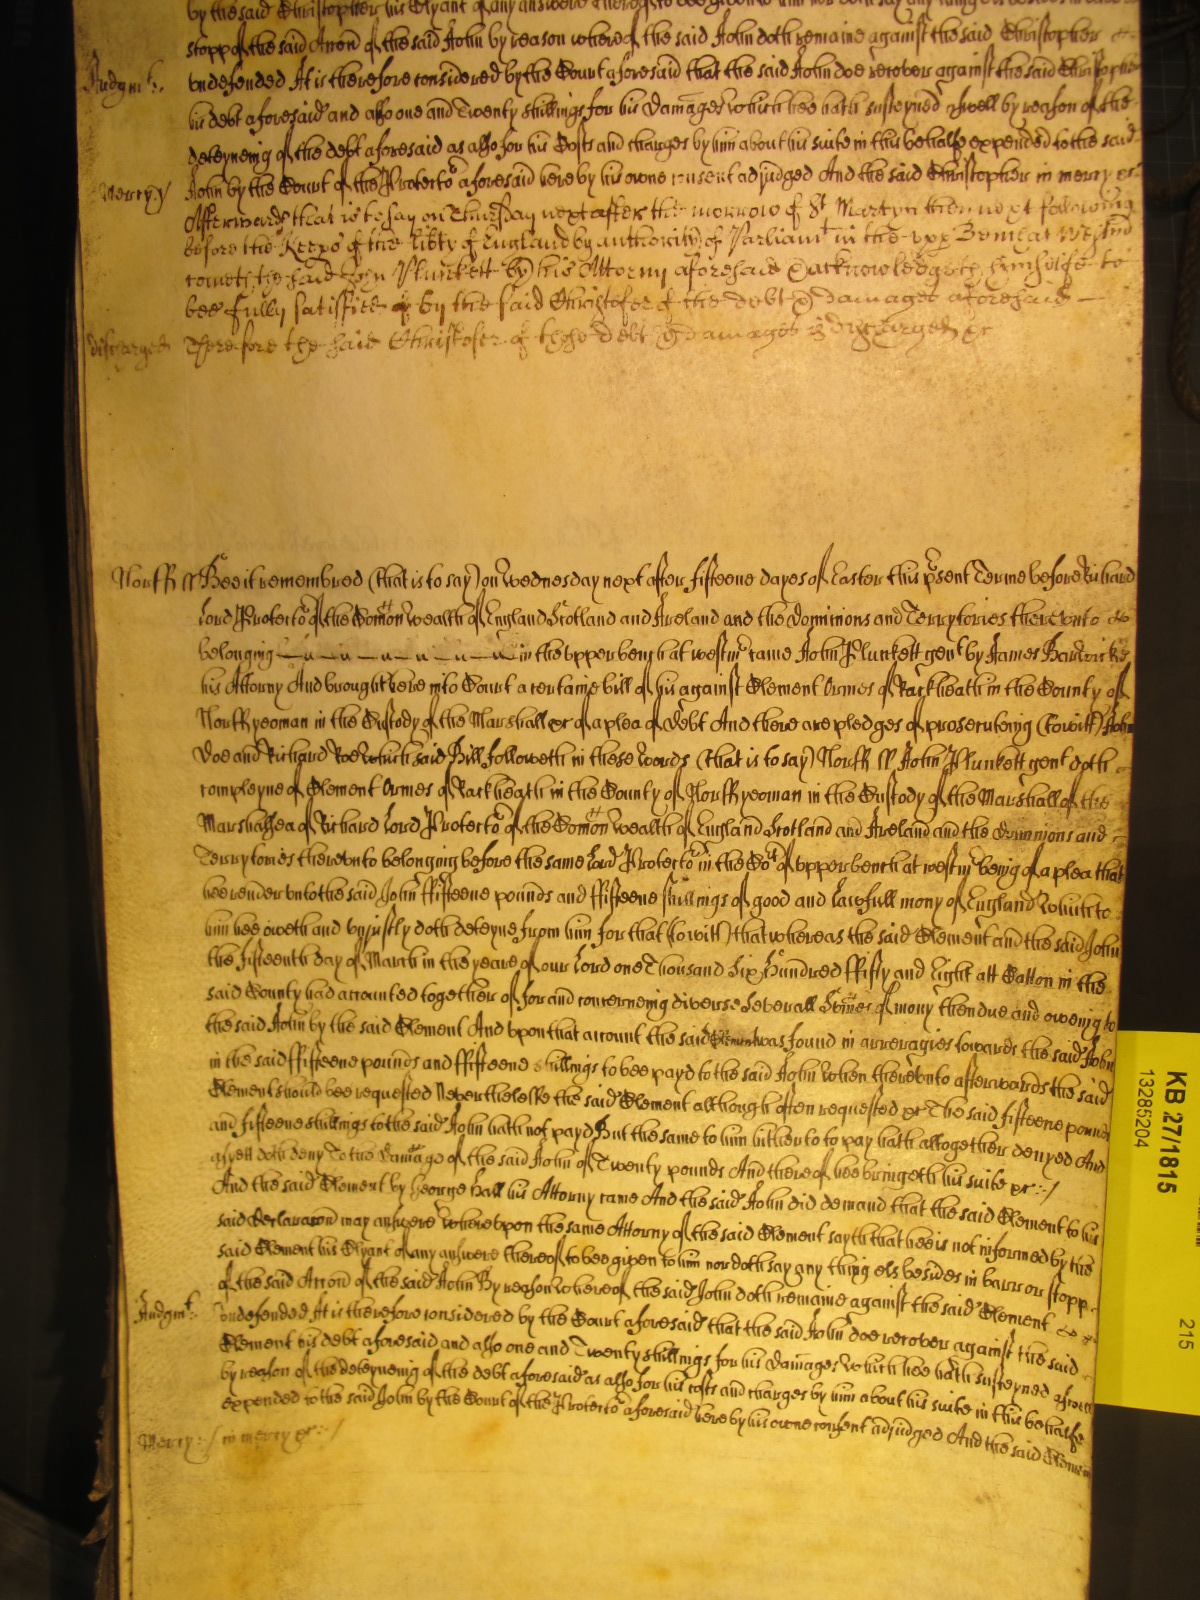 by the said Christopher his Clyant of any answere thereof to bee given to him nor doth say any thing els besides in barr or
stopp of the said Accon of the said John by reason whereof the said John doth remaine against the said Christopher &c
Judgmt: undefended It is therefore considered by the Court aforesaid that the said John doe recover against the said Christopher
his debt aforesaid and also one and Twenty shillings for his damages which hee hath susteyned aswell by reason of the
deteyneing of the debt aforesaid as also for his Costs and charges by him about his suite in this behalfe expended to the said
Mercy/ John by the Court of the Protector aforesaid here by his owne consent adjudged And the said Christopher in mercy &c
Afterwards that is to say on Thursday next after the morrow of St Martyn then next following
before the Keeps of the libty of England by authority of Parliamt in the upp Bench at Westm
cometh the said John Plunkett by his Attorny aforesaid & acknowledgeth himselfe to
bee fully satisfied by the said Christofer of the debt & damages aforesaid
discharged Therefore the said Christofer of those debt & damages is discharged &c
Norff ss Bee it remembred (that is to say) on Wednesday next after fifteene dayes of Easter this psent Terme before Richard
Lord Protector of the Comon wealth of England Scotland and Ireland and the Dominions and Terrytories thereunto &c
belonging in the upper bench at westmr came John Plunkett gent by James Hardwicke
his Attorny And brought here into Court a certaine bill of his against Clement Ormes of Rackheath in the County of
Norff yeoman in the Custody of the Marshall &c of a plea of Debt And there are pledges of prosecuteing (towitt) John
Doe and Richard Roe which said Bill followeth in these words (that is to say) Norff ss John Plunkett gent doth
compleyne of Clement Ormes of Rackheath in the County of Norff yeoman in the Custody of the Marshall of the
Marshallsea of Richard Lord Protector of the Comon wealth of England Scotland and Ireland and the Dominions and
Terrytories thereunto belonging before the same Lord Protector in the Cort of upper bench at westmr being of a plea that
hee render unto the said John ffifteene pounds and ffifteene shillings of good and lawfull mony of England which to
him hee oweth and unjustly doth deteyne from him for that (towitt) that whereas the said Clement and the said John
the fifteenth day of March in the yeare of our Lord one Thousand Six Hundred ffifty and Eight att Catton in the
said County had accounted together of for and concerneing diverse severall Somes of mony then due and oweing to
the said John by the said Clement And upon that account the said Clement was found in arreragies towards the said John
in the said ffifteene pounds and ffifteene shillings to bee payd to the said John when thereunto afterwards the said
Clement should bee requested Neverthelesse the said Clement although often requested &c The said fifteene pounds
and fifteene shillings to the said John hath not payd But the same to him hitherto to pay hath altogether denyed And
as yett doth deny To the Damage of the said John of Twenty pounds And thereof hee bringeth his suite &c:/
And the said Clement by George Hall his Attorny came And the said John did demand that the said Clement to his
said Declaracon may answere whereupon the same Attorny of the said Clement sayth that hee is not informed by the
said Clement his Clyant of any answere thereof to bee given to him nor doth say any thing els besides in barr or stopp
of the said Accon of the said John By reason whereof the said John doth remaine against the said Clement
Judgmt: undefended It is therefore considered by the Court aforesaid that the said John doe recover against the said
Clement his debt aforesaid and also one and Twenty shillings for his damages which hee hath susteyned aswell
by reason of the deteyneing of the debt aforesaid as also for his costs and charges by him about his suite in this behalfe
expended to the said John by the Court of the Protector aforesaid here by his owne consent adjudged And the said Clement
Mercy:/ in mercy &c:/
KB 27/1815
13285204
215